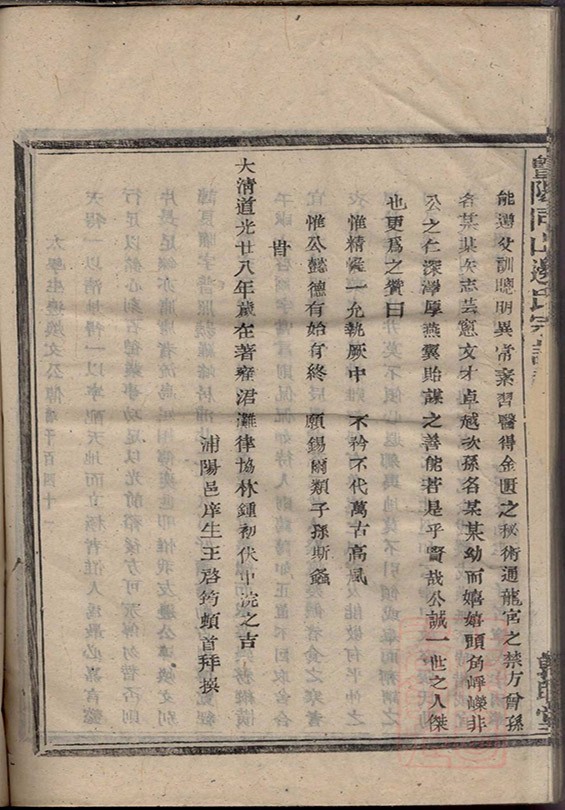 暨陽同山邊氏宗譜
能遵父訓聰明異常業習醫得金匱之秘術通龍宮之禁方曾孫
名某某矢志芸窻文才卓越次孫名某某幼而嬉嬉頭角崢嶸非
公之仁深澤厚燕翼貽謀之善能若是乎賢哉公誠一世之人傑
也更爲之贊曰
惟精惟一允執厥中 不矜不伐萬古高風
惟公懿德有始有終 願錫爾類子孫斯螽
旹
大清道光廿八年歲在著雍涒灘律協林鍾初伏中浣之吉
浦陽邑庠生王啓筠頓首拜撰